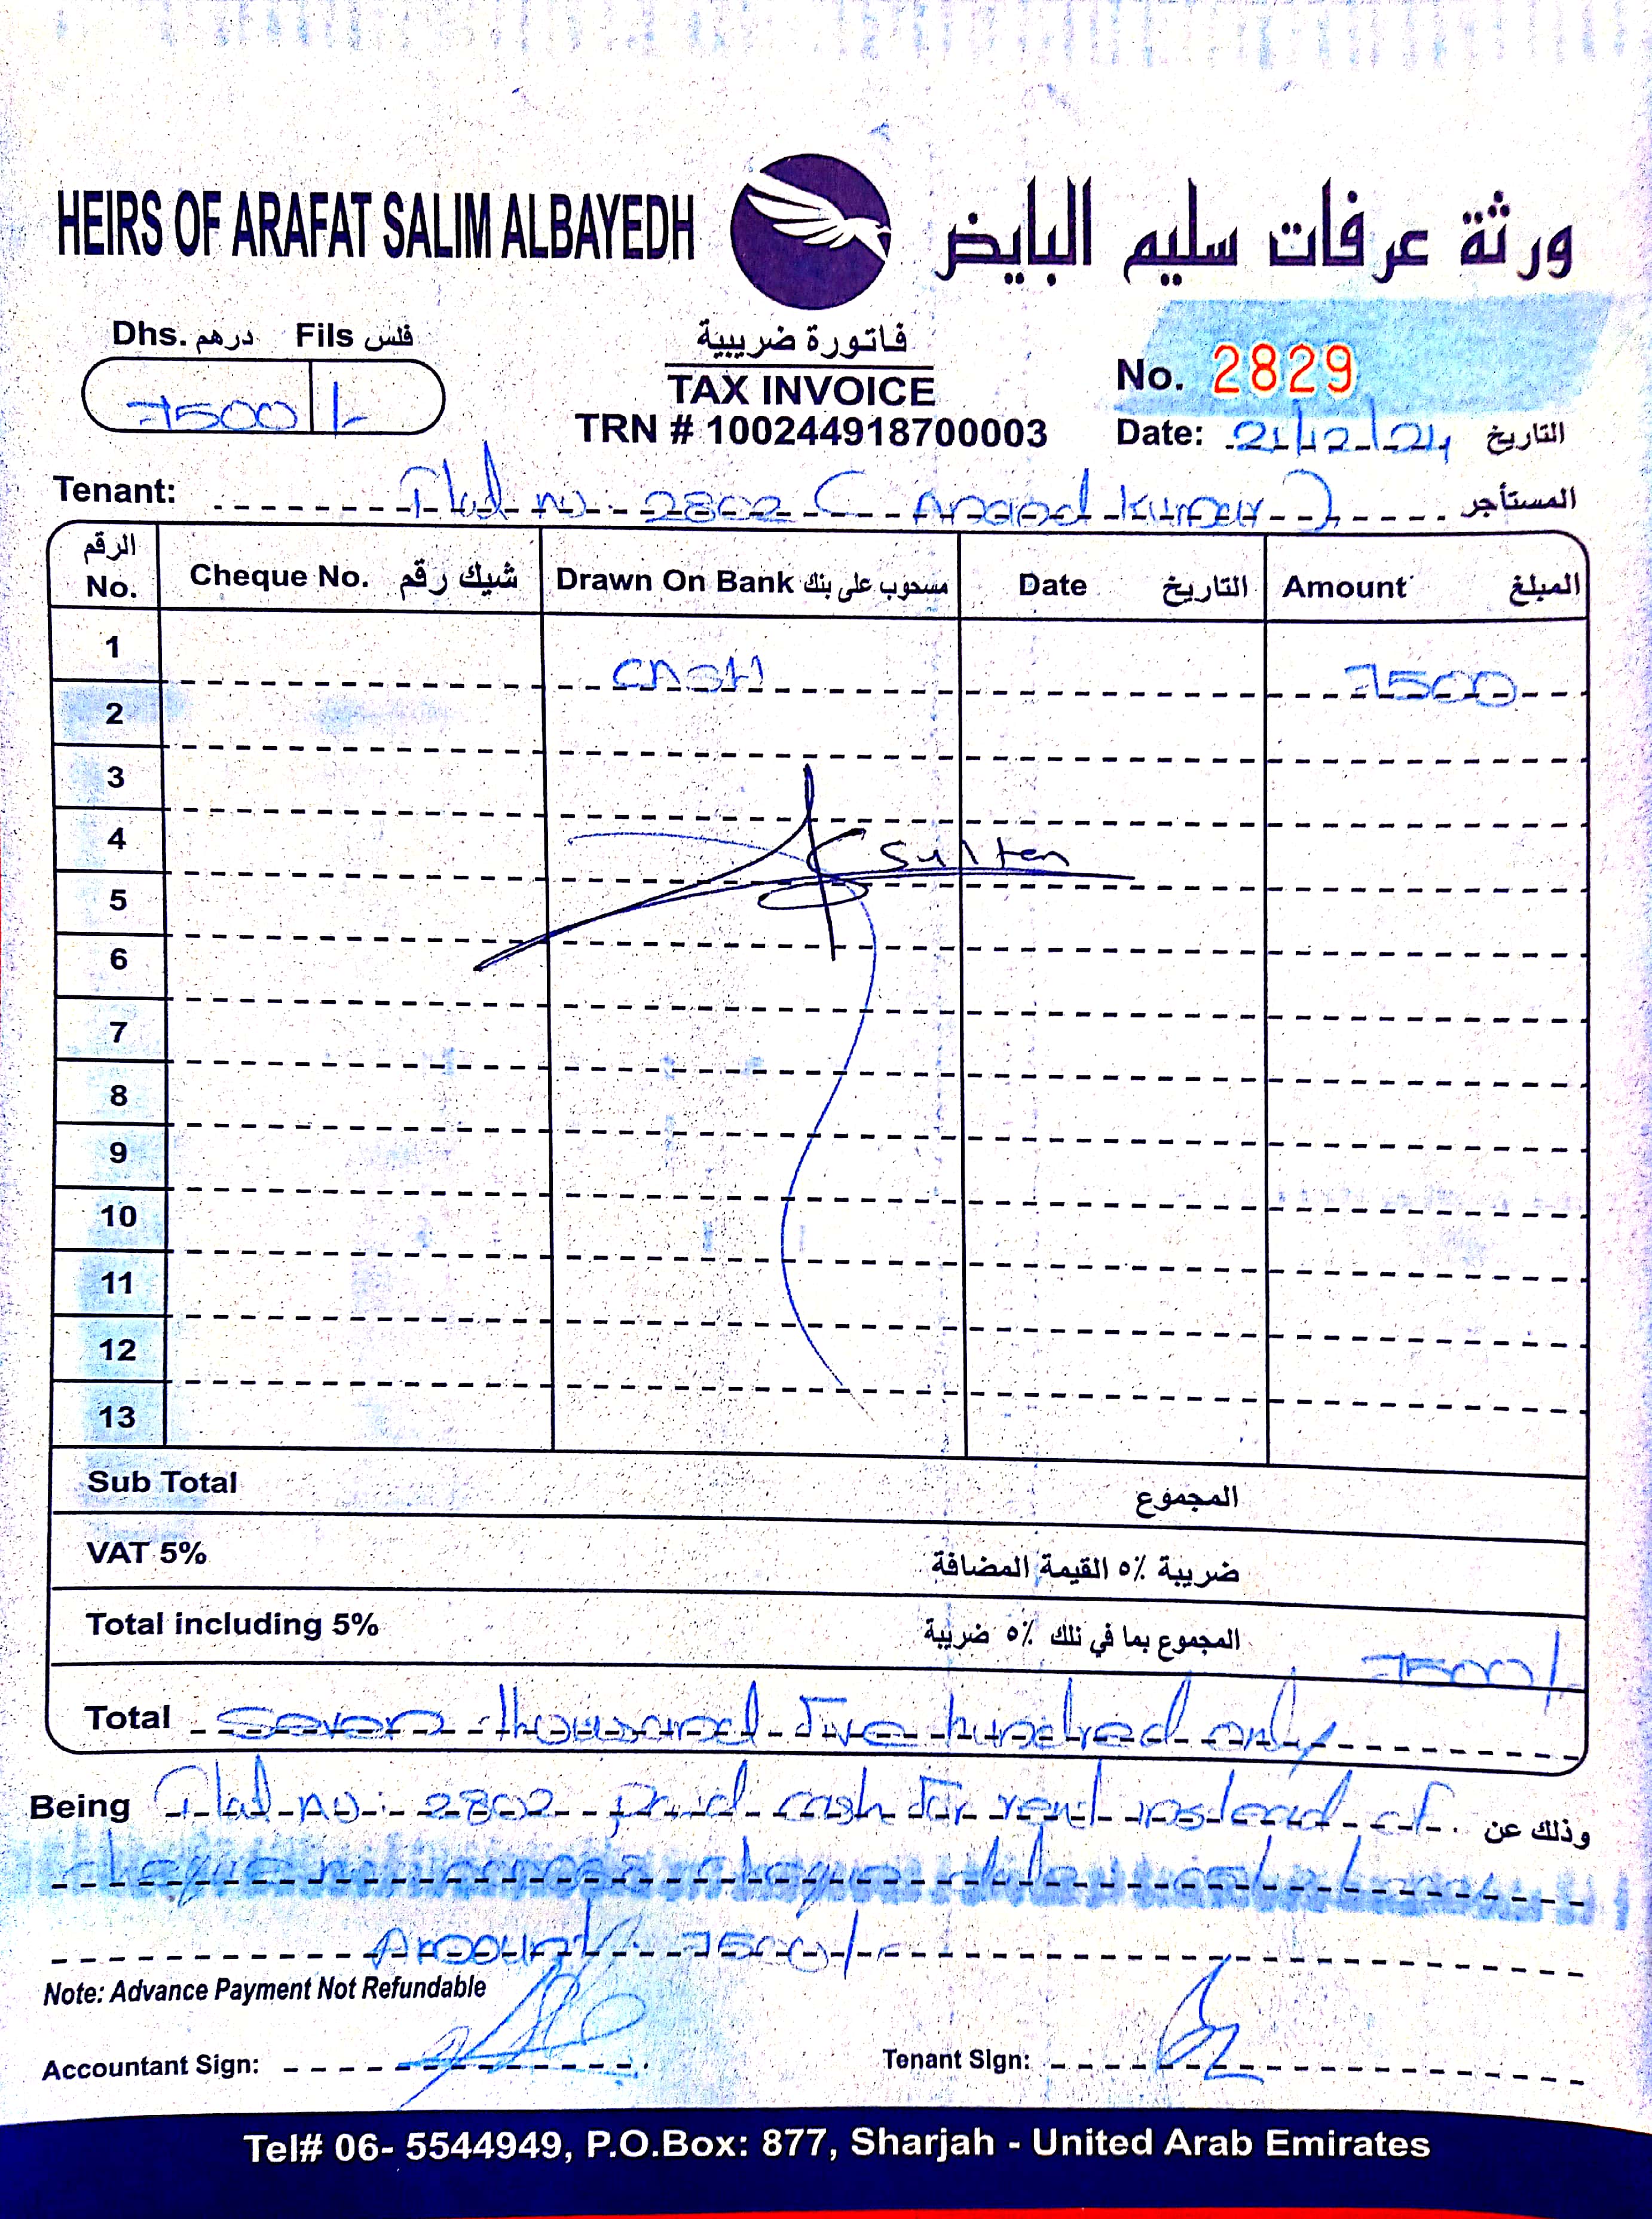 HEIRS OF ARAFAT SALIM ALBAYEDH ورثة عرفات سليم البايض
Dhs. درهم Fils فلس
7500 /-
فاتورة ضريبية
TAX INVOICE
TRN # 100244918700003
No. 2829
Date: 21/12/24 التاريخ
Tenant: Flat no: 2802 ( Anand Kumar ) المستأجر
الرقم No. Cheque No. شيك رقم Drawn On Bank مسحوب على بنك Date التاريخ Amount المبلغ
1 CASH 7500
2
3
4 Sultan
5
6
7
8
9
10
11
12
13
Sub Total المجموع
VAT 5% ضريبة ٥٪ القيمة المضافة
Total including 5% المجموع بما في ذلك ٥٪ ضريبة 7500/-
Total Seven thousand five hundred only
Being Flat no: 2802 paid cash for rent instead of وذلك عن
cheque cheque
Amount 7500/-
Note: Advance Payment Not Refundable
Accountant Sign: Tenant Sign:
Tel# 06- 5544949, P.O.Box: 877, Sharjah - United Arab Emirates